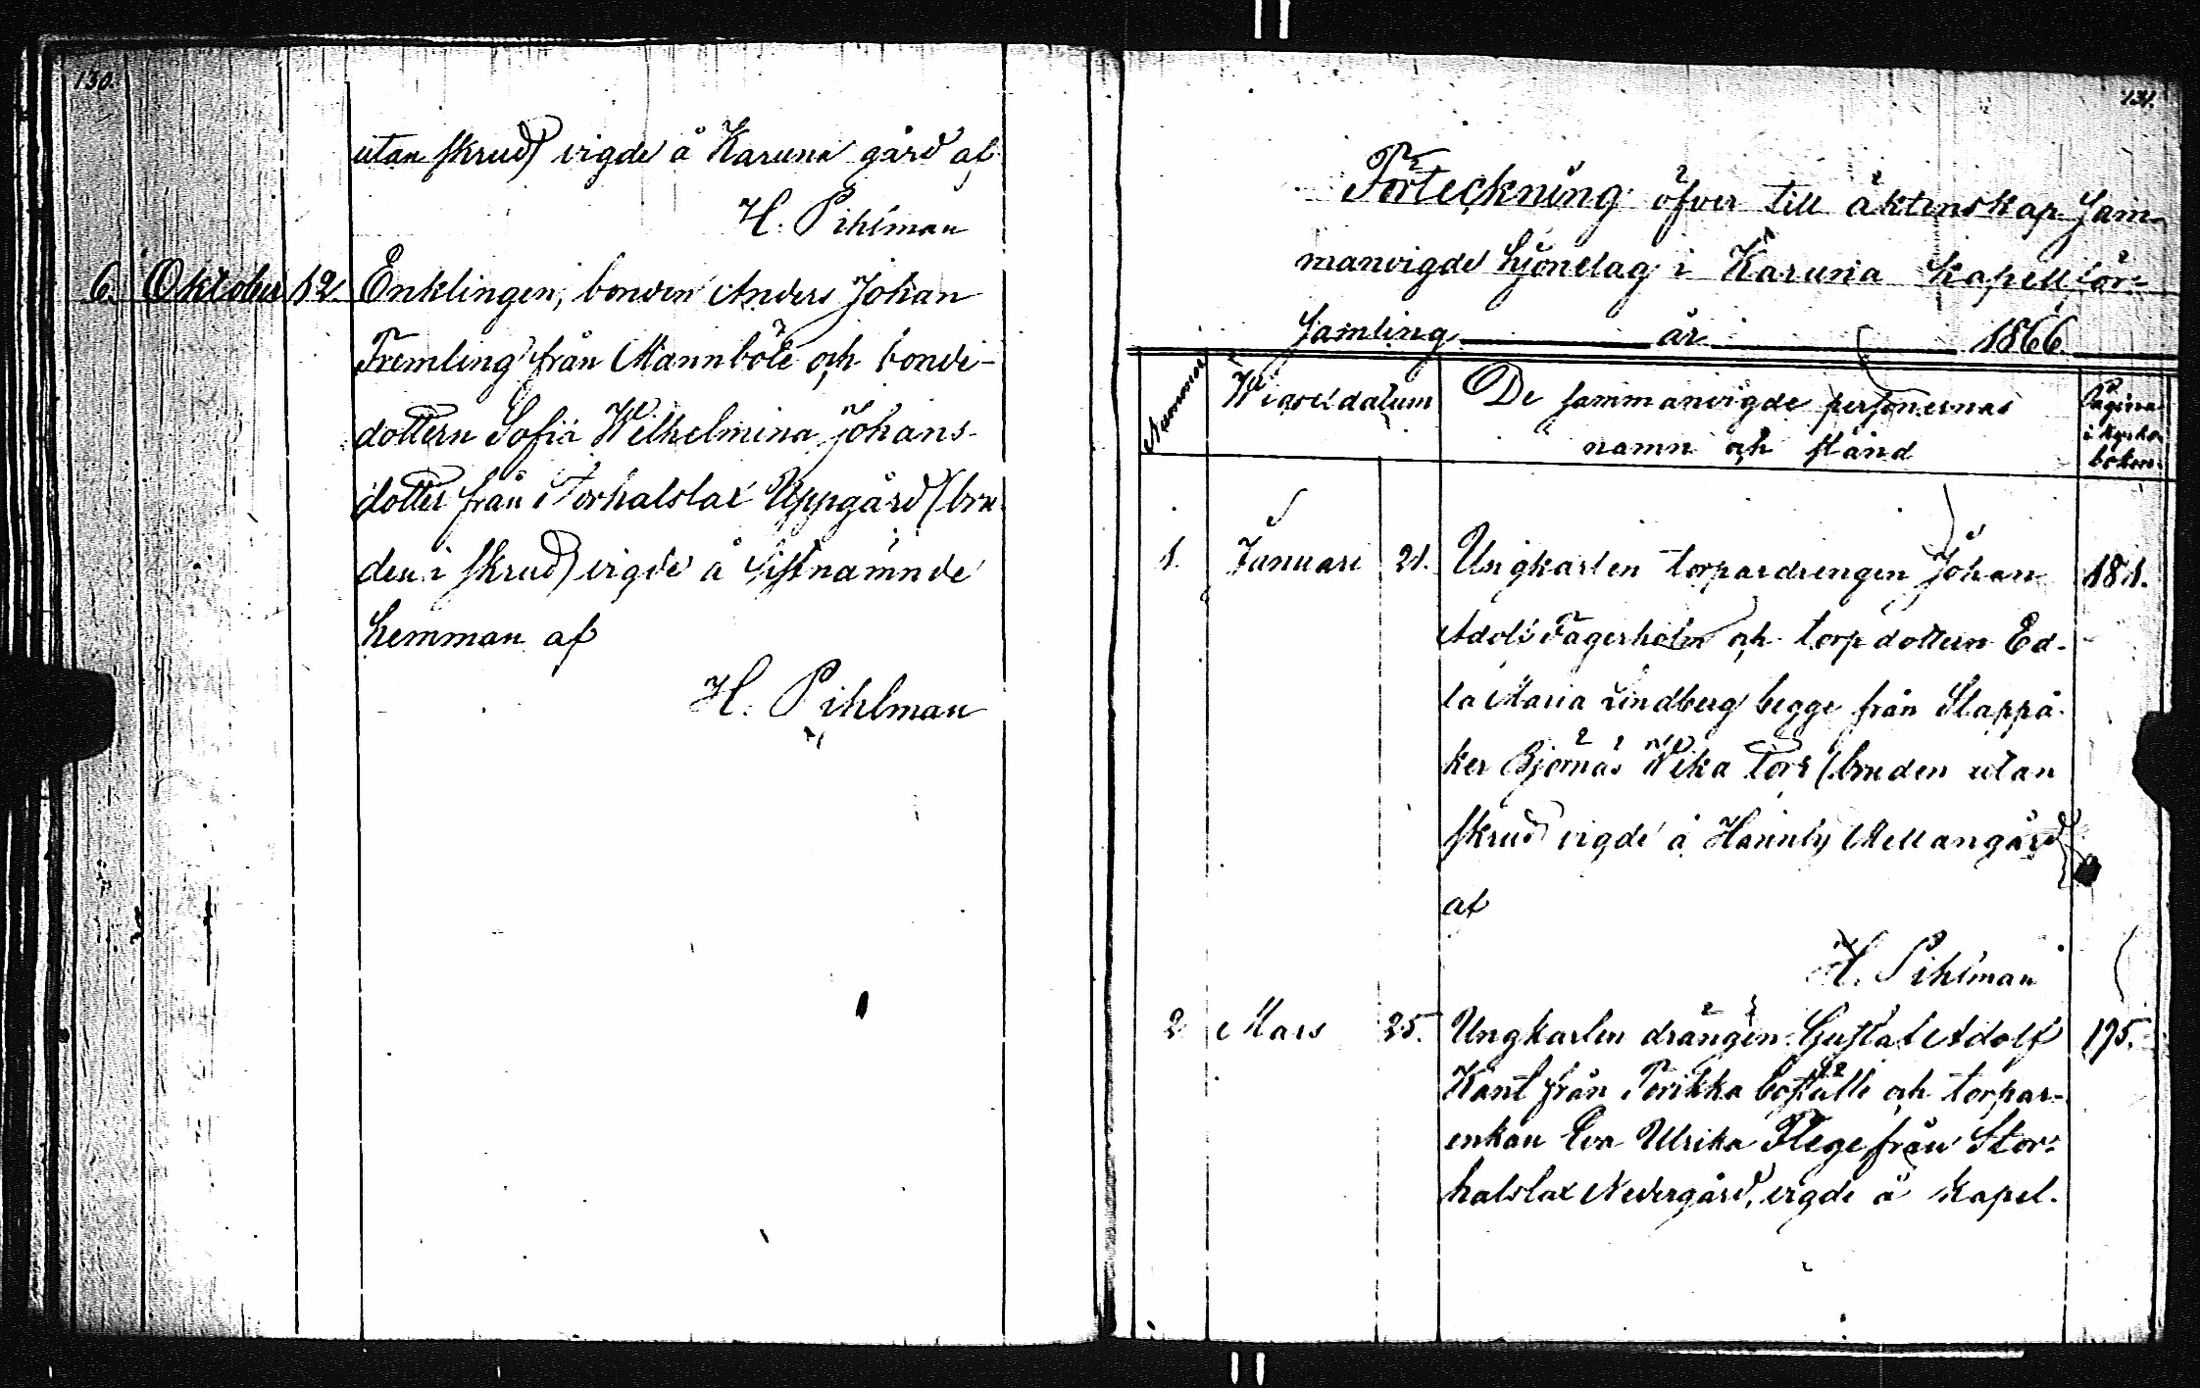 130.
utan skrud) vigde å Karuna gård af
H. Pihlman
6. Oktober 12. Enklingen, bonden Anders Johan
Fremling från Mannböle och bonde-
dottern Sofia Wilhelmina Johans-
dotter från Storhalslax Uppgård (bru-
den i skrud) vigde å sistnämnde
hemman af
H. Pihlman
131.
Förteckning öfver till äktenskap Sam-
manvigde hjonelag i Karuna Kapellför-
samling år 1866.
Nummer
Wigseldatum
De sammanvigde personernas
namn och stånd
Pagina
i kyrko
boken.
1. Januari 21. Ungkarlen torpardrengen Johan 181.
Adolf Fagerholm och torpdottern Ed-
la Maria Lindberg begge från Slappå-
ker Björnäs Wika torp (bruden utan
skrud) vigde å Hannby Mellangård
af
H. Pihlman
2 Mars 25. Ungkarlen drängen Gustaf Adolf 175.
Kant från Porikka boställe och torpar-
enkan Eva Ulrika Flege från Stor-
halslax Nedergård, vigde å Kapel-